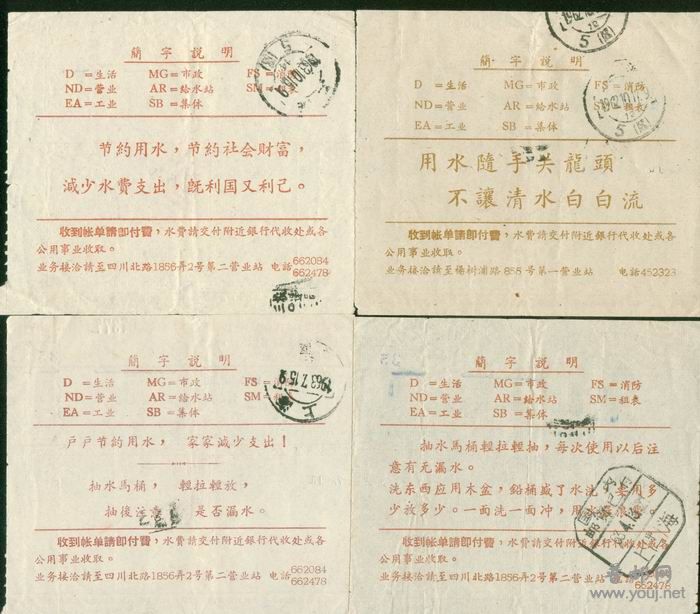 簡字説明
D =生活 MG=市政 FS=消防
ND=营业 AR=給水站 SM=
EA=工业 SB=集体
节約用水，节約社会財富，
減少水費支出，旣利国又利己。
收到帐单請即付費，水費請交付附近銀行代收处或各
公用事业收取。
业务接洽請至四川北路1856弄2号第二营业站 电話662084
662478
簡字説明
D =生活 MG=市政 FS=消防
ND=营业 AR=給水站 SM=租表
EA=工业 SB=集体
用水隨手关龍頭
不讓清水白白流
收到帐单請即付費，水費請交付附近銀行代收处或各
公用事业收取。
业务接洽請至楊树浦路855号第一营业站 电話452323
簡字説明
D =生活 MG=市政 FS=消
ND=营业 AR=給水站 SM=
EA=工业 SB=集体
戶戶节約用水， 家家減少支出！
抽水馬桶， 輕拉輕放，
抽後注意 是否漏水。
收到帐单請即付費，水費請交付附近銀行代收处或各
公用事业收取。
业务接洽請至四川北路1856弄2号第二营业站 电話662084
662478
簡字説明
D =生活 MG=市政 FS=消防
ND=营业 AR=給水站 SM=租表
EA=工业 SB=集体
抽水馬桶輕拉輕抽，每次使用以后注
意有无漏水。
洗东西应用木盆，鉛桶盛了水洗，要用多
少放多少。一面洗一面冲，用水最浪費。
收到帐单請即付費，水費請交付附近銀行代收处或各
公用事业收取。
业务接洽請至四川北路1856弄2号第二营业站
662478
www.youj.net